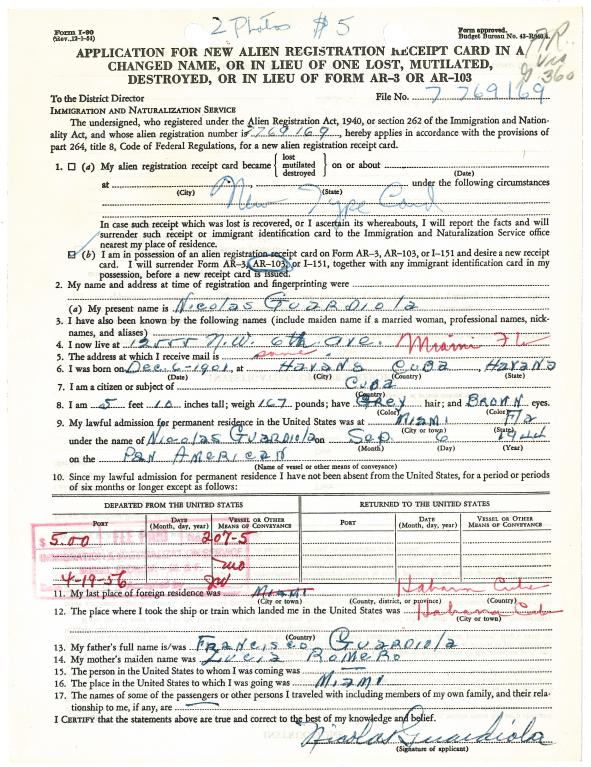 2 Photos $5
Form I-90
(Rev. 12-1-54)
Form approved.
Budget Bureau No. 43-R040.
APPLICATION FOR NEW ALIEN REGISTRATION RECEIPT CARD IN A
CHANGED NAME, OR IN LIEU OF ONE LOST, MUTILATED,
DESTROYED, OR IN LIEU OF FORM AR-3 OR AR-103
To the District Director
File No. 7 769169
360
IMMIGRATION AND NATURALIZATION SERVICE
The undersigned, who registered under the Alien Registration Act, 1940, or section 262 of the Immigration and Nation-
ality Act, and whose alien registration number is 7769169, hereby applies in accordance with the provisions of
part 264, title 8, Code of Federal Regulations, for a new alien registration receipt card.
1. (a) My alien registration receipt card became { lost mutilated destroyed } on or about
(Date)
at under the following circumstances
(City) (State)
New Type Card
In case such receipt which was lost is recovered, or I ascertain its whereabouts, I will report the facts and will
surrender such receipt or immigrant identification card to the Immigration and Naturalization Service office
nearest my place of residence.
(b) I am in possession of an alien registration receipt card on Form AR-3, AR-103, or I-151 and desire a new receipt
card. I will surrender Form AR-3, AR-103, or I-151, together with any immigrant identification card in my
possession, before a new receipt card is issued.
2. My name and address at time of registration and fingerprinting were
(a) My present name is Nicolas Guardiola
3. I have also been known by the following names (include maiden name if a married woman, professional names, nick-
names, and aliases)
4. I now live at N.W. 6th ave. Miami Fla
5. The address at which I receive mail is same
6. I was born on Dec. 6-1901, at Havana Cuba, Havana
(Date) (City) (Country) (State)
7. I am a citizen or subject of Cuba
(Country)
8. I am 5 feet 10 inches tall; weigh 167 pounds; have Grey hair; and Brown eyes.
(Color) (Color)
9. My lawful admission for permanent residence in the United States was at Miami Fla
(City or town) (State)
under the name of Nicolas Guardiola on Sep. 6 1944
(Month) (Day) (Year)
on the Pan American
(Name of vessel or other means of conveyance)
10. Since my lawful admission for permanent residence I have not been absent from the United States, for a period or periods
of six months or longer except as follows:
DEPARTED FROM THE UNITED STATES RETURNED TO THE UNITED STATES
PORT DATE (Month, day, year) VESSEL OR OTHER MEANS OF CONVEYANCE PORT DATE (Month, day, year) VESSEL OR OTHER MEANS OF CONVEYANCE
5.00 FEE PAID 207-5
4-19-56
11. My last place of foreign residence was Miami Habana Cuba
(City or town) (County, district, or province) (Country)
12. The place where I took the ship or train which landed me in the United States was Habana Cuba
(City or town)
(Country)
13. My father's full name is/was Francisco Guardiola
14. My mother's maiden name was Lucia Romero
15. The person in the United States to whom I was coming was
16. The place in the United States to which I was going was Miami
17. The names of some of the passengers or other persons I traveled with including members of my own family, and their rela-
tionship to me, if any, are
I CERTIFY that the statements above are true and correct to the best of my knowledge and belief.
Nicolas Guardiola
(Signature of applicant)